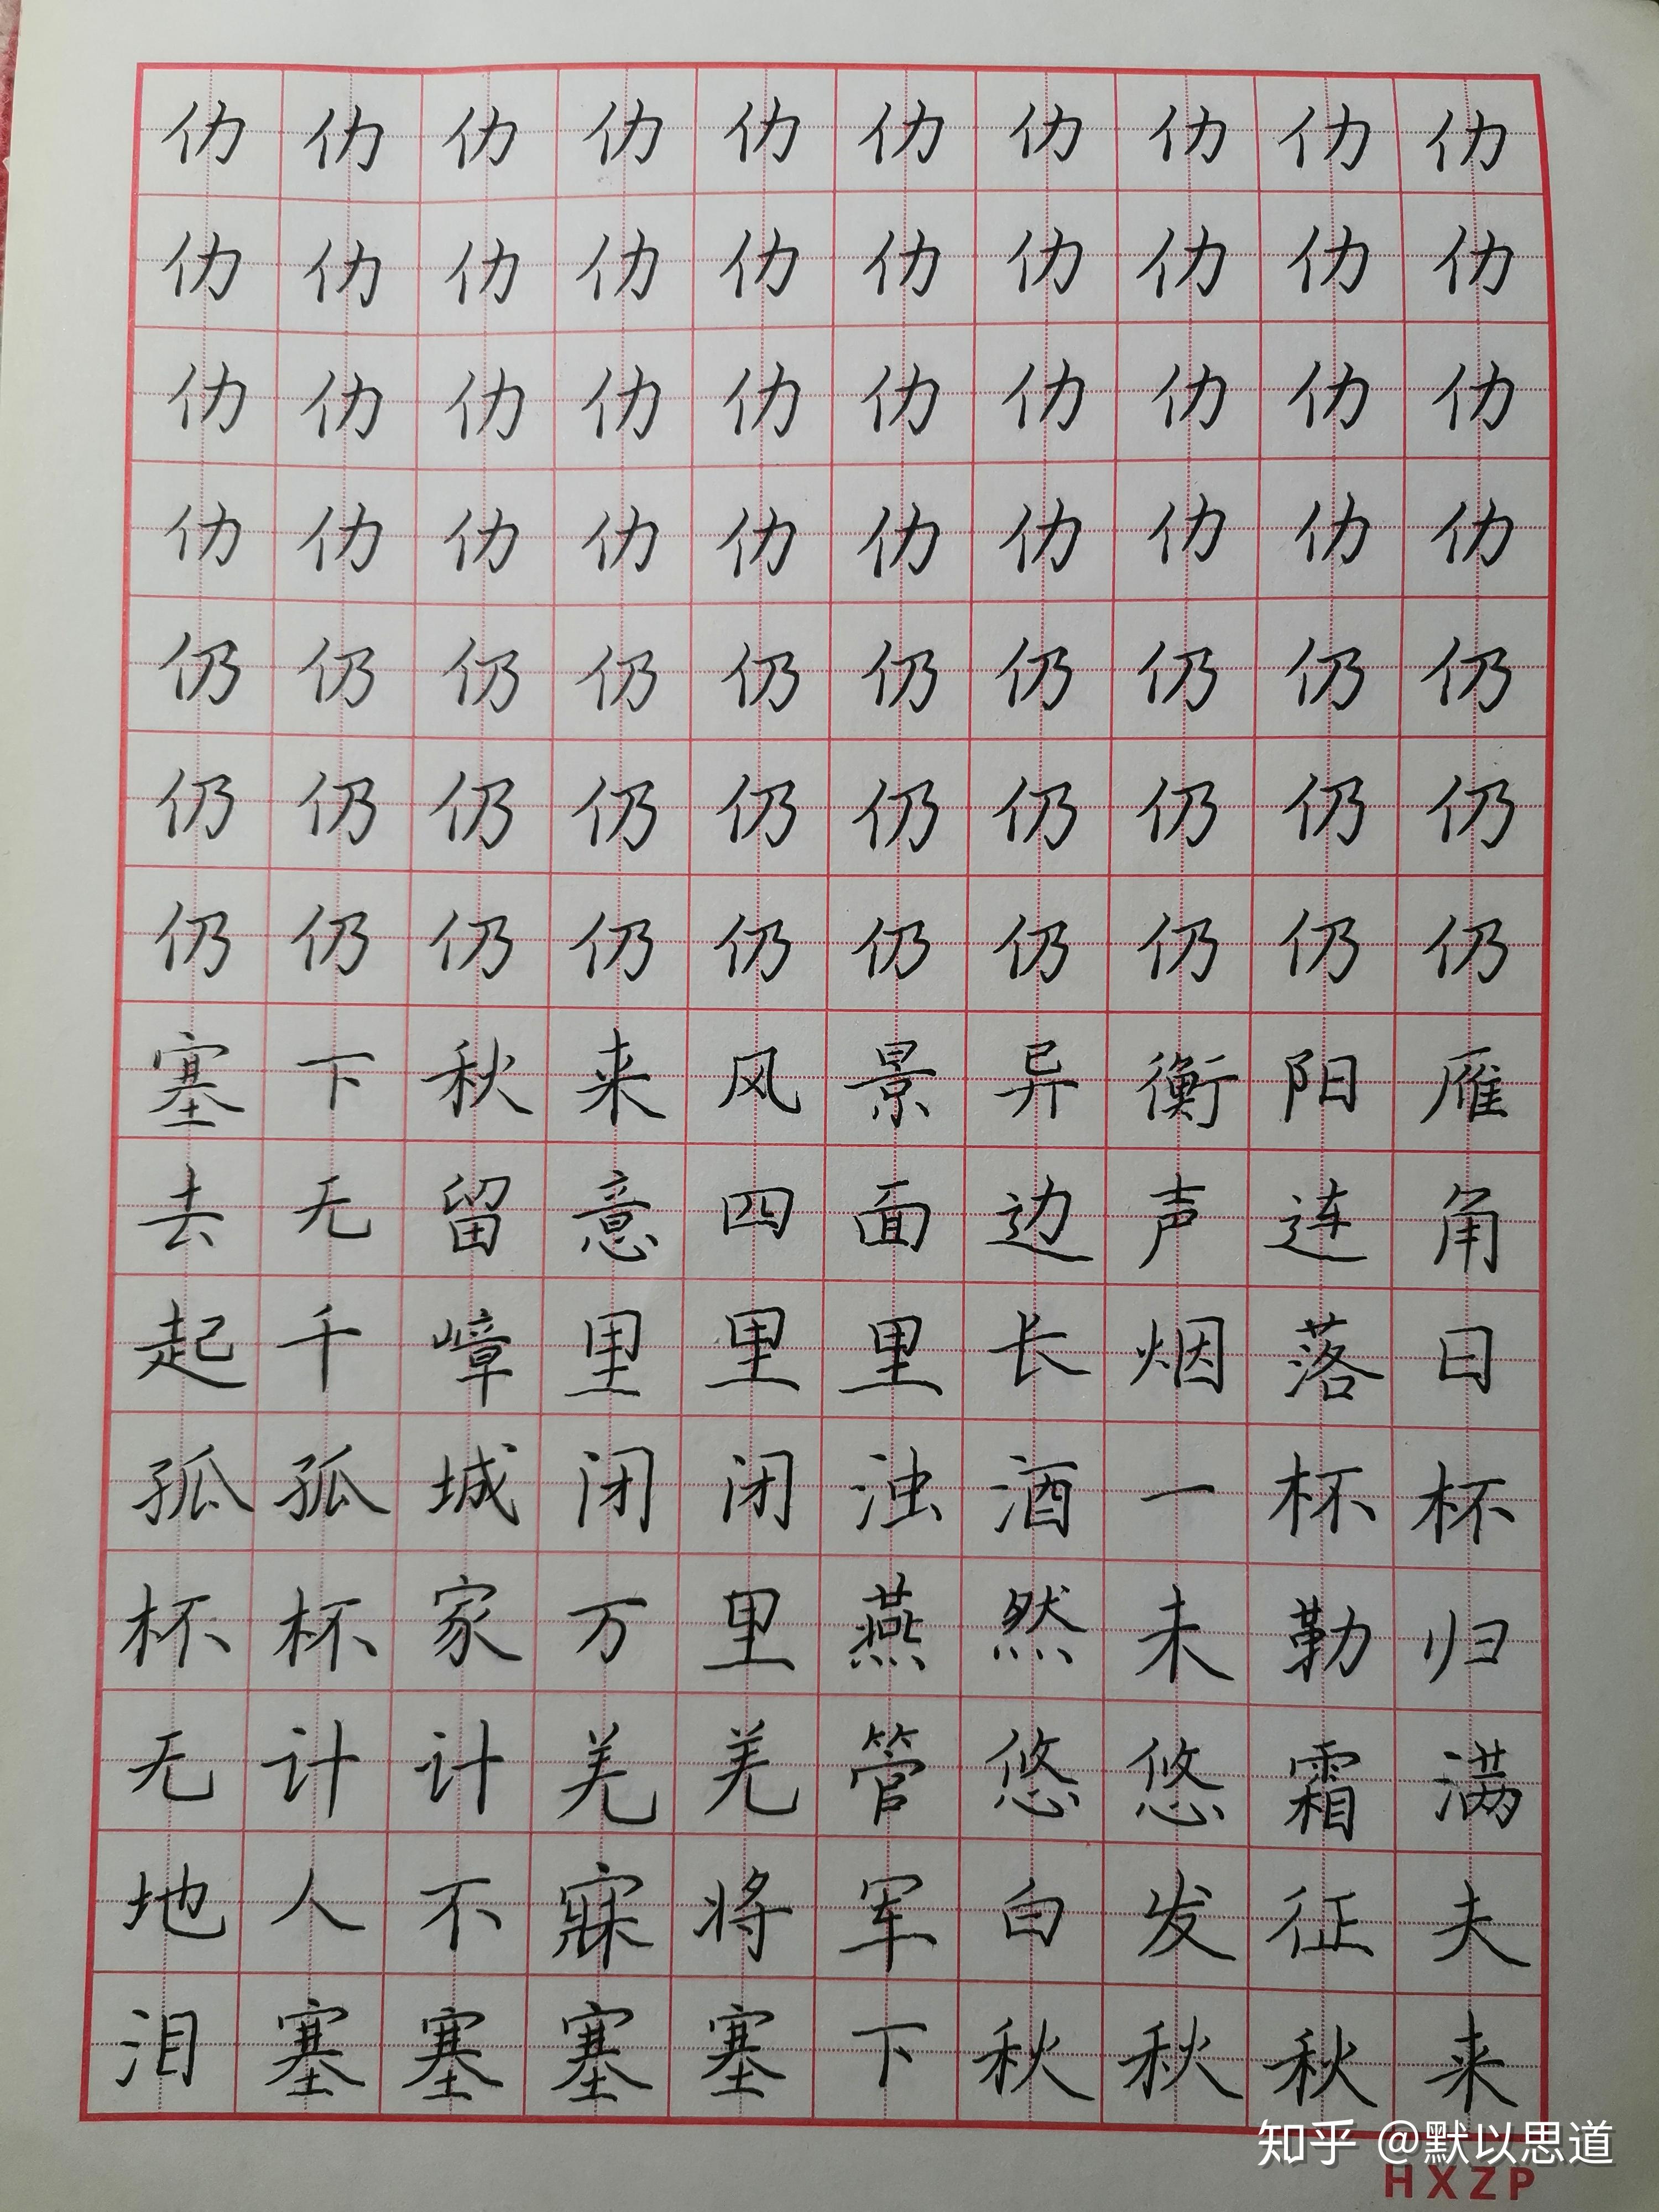 仂仂仂仂仂仂仂仂仂仂
仂仂仂仂仂仂仂仂仂仂
仂仂仂仂仂仂仂仂仂仂
仂仂仂仂仂仂仂仂仂仂
仍仍仍仍仍仍仍仍仍仍
仍仍仍仍仍仍仍仍仍仍
仍仍仍仍仍仍仍仍仍仍
塞下秋来风景异衡阳雁
去无留意四面边声连角
起千嶂里里里长烟落日
孤孤城闭闭浊酒一杯杯
杯杯家万里燕然未勒归
无计计羌羌管悠悠霜满
地人不寐将军白发征夫
泪塞塞塞塞下秋秋秋来
知乎 @默以思道
HXZP